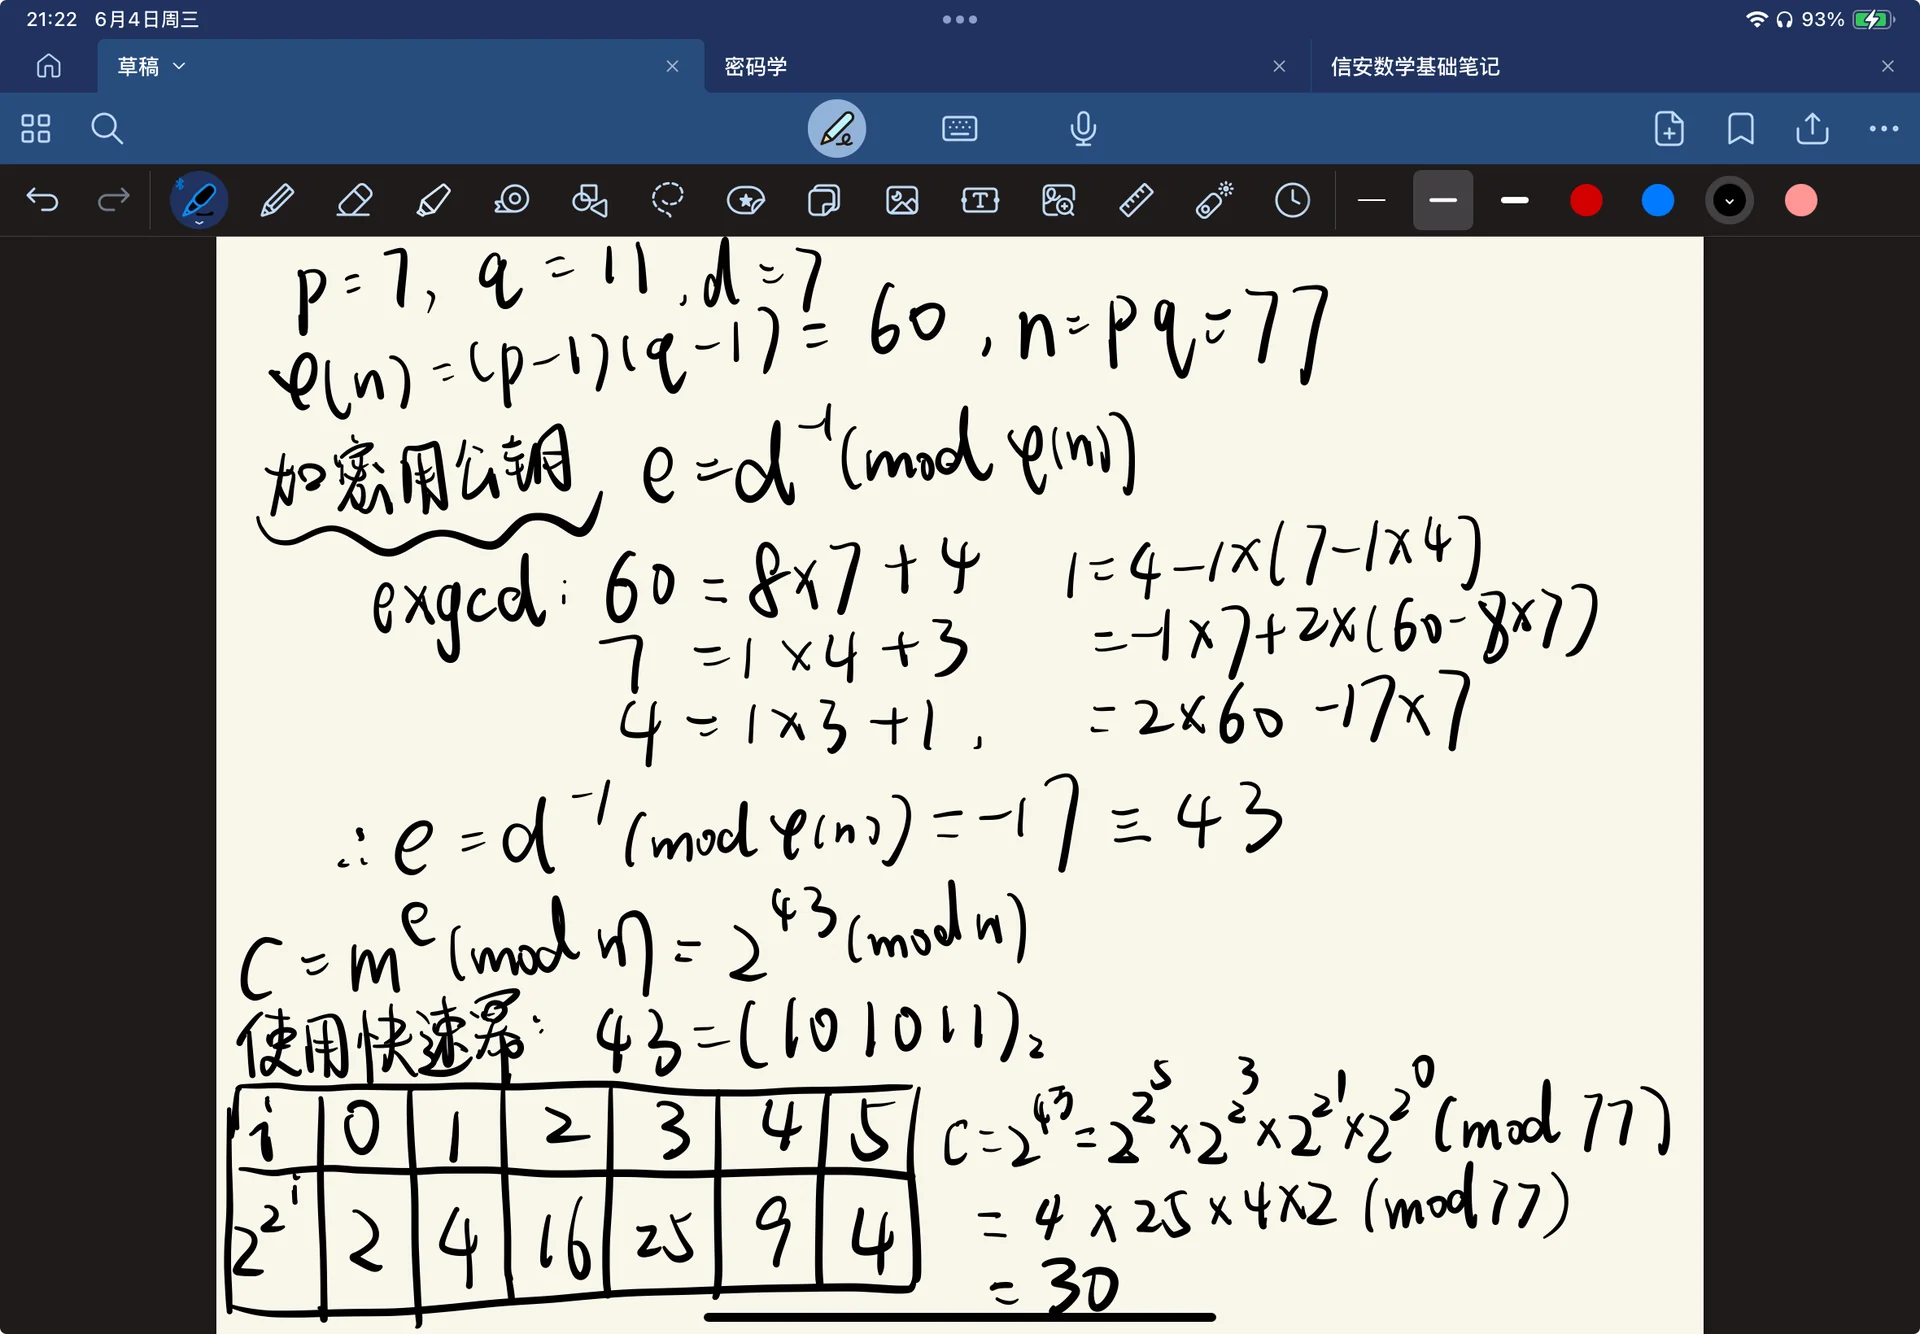 21:22 6月4日周三
93%
草稿
密码学
信安数学基础笔记
p=7, q=11, d=7
φ(n)=(p-1)(q-1)=60, n=pq=77
加密用公钥 e=d⁻¹(mod φ(n))
exgcd: 60=8×7+4
7=1×4+3
4=1×3+1,
1=4-1×(7-1×4)
=-1×7+2×(60-8×7)
=2×60-17×7
∴e=d⁻¹(mod φ(n))=-17≡43
C=m^e(mod n)=2^43(mod n)
使用快速幂: 43=(101011)₂
i 0 1 2 3 4 5
2^2^i 2 4 16 25 9 4
C=2^43=2^2^5×2^2^3×2^2^1×2^2^0(mod 77)
=4×25×4×2(mod 77)
=30